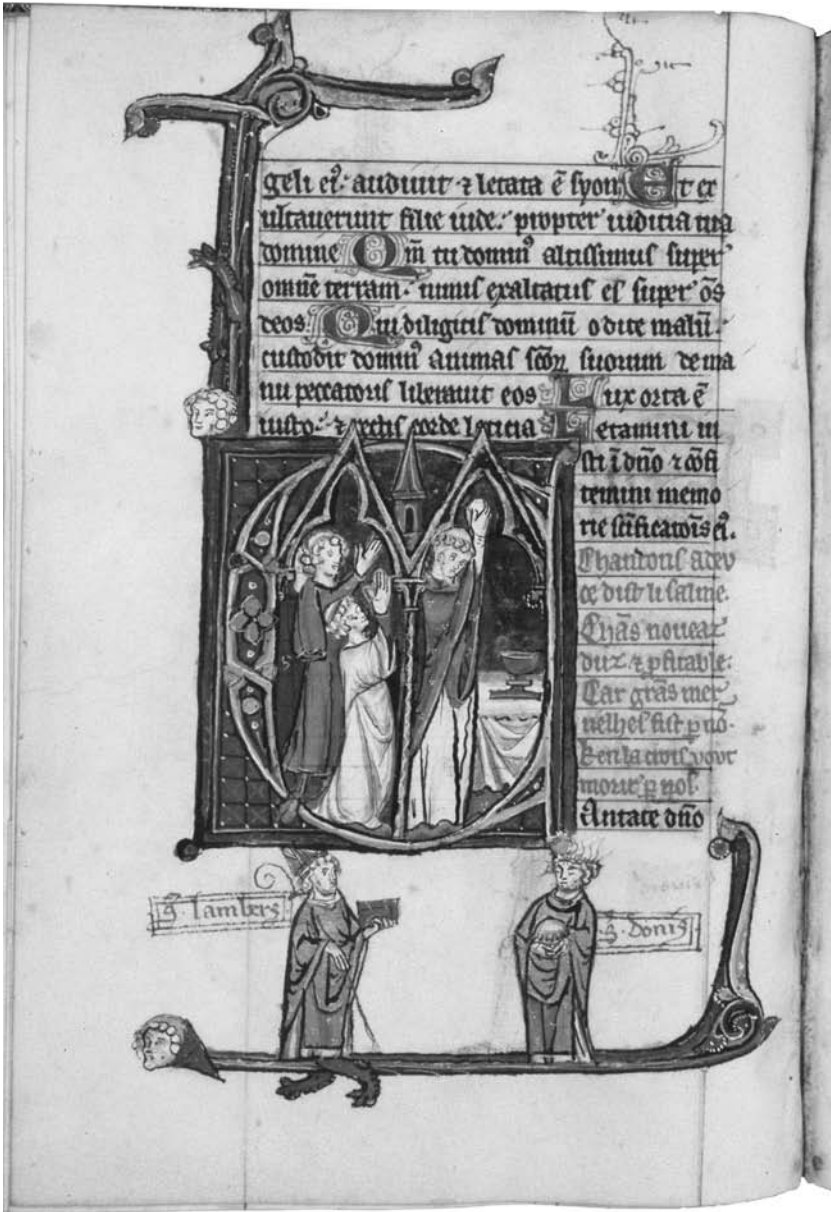 geli eiꝰ· audiuit ⁊ letata ē syon Et ex
ultauerunt filie iude· propter iudicia tua
domine Qm̄ tu dominꝰ altissimus super
omnē terram· nimis exaltatus es super ōs
deos Qui diligitis dominū odite malū·
custodit dominꝰ animas scōꝝ suorum de ma
nu peccatoris liberauit eos Lux orta ē
iusto· ⁊ rectis corde leticia Letamini iu
sti ī dn̄o ⁊ ɔfi
temini memo
rie scīficatōis eiꝰ·
Chantons a deu
ce dist li salme·
Chās noueaz
duz ⁊ ꝓfitable·
Car grās mer
uelhes fist ꝑ nō·
Ken la crois vout
morir ꝑ nos·
Antate dn̄o
S· lambers
·S· donis